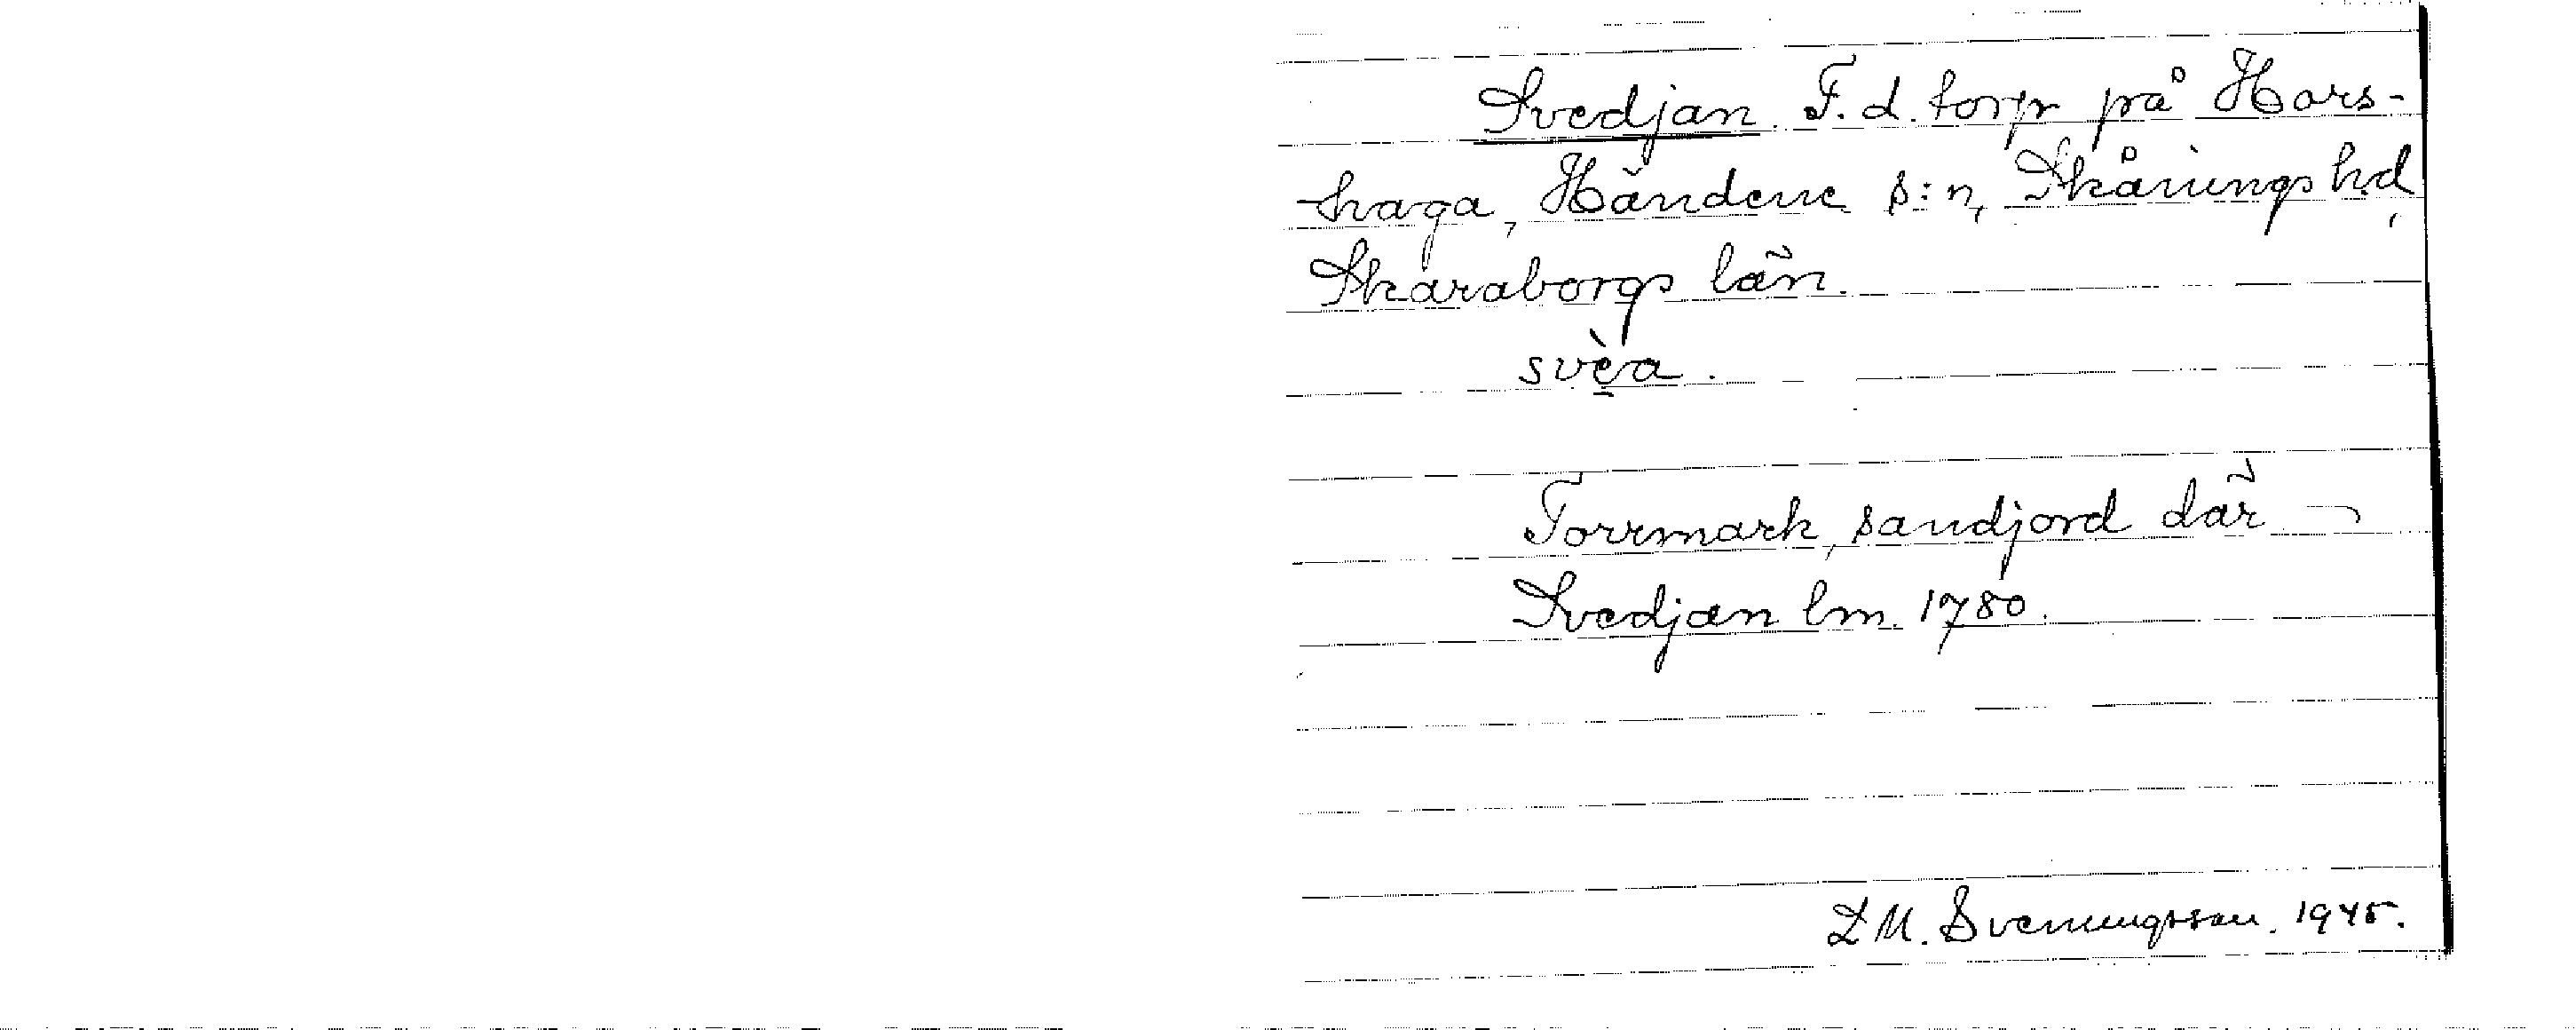 Svedjan. F. d. torp på Hors-
haga, Händene s:n, Skånings hd,
Skaraborgs län.
svè̱a.
Torrmark, sandjord där
Svedjan lm. 1780.
L M. Svenungsson. 1945.